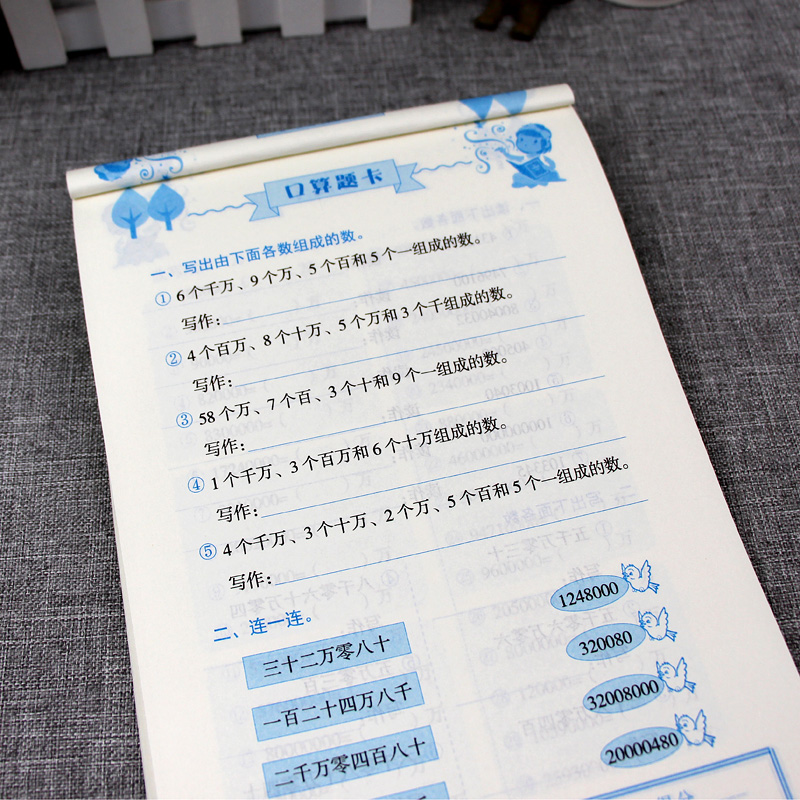 口算题卡
一、写出由下面各数组成的数。
① 6个千万、9个万、5个百和5个一组成的数。
写作：
② 4个百万、8个十万、5个万和3个千组成的数。
写作：
③ 58个万、7个百、3个十和9个一组成的数。
写作：
④ 1个千万、3个百万和6个十万组成的数。
写作：
⑤ 4个千万、3个十万、2个万、5个百和5个一组成的数。
写作：
二、连一连。
三十二万零八十
一百二十四万八千
二千万零四百八十
1248000
320080
32008000
20000480